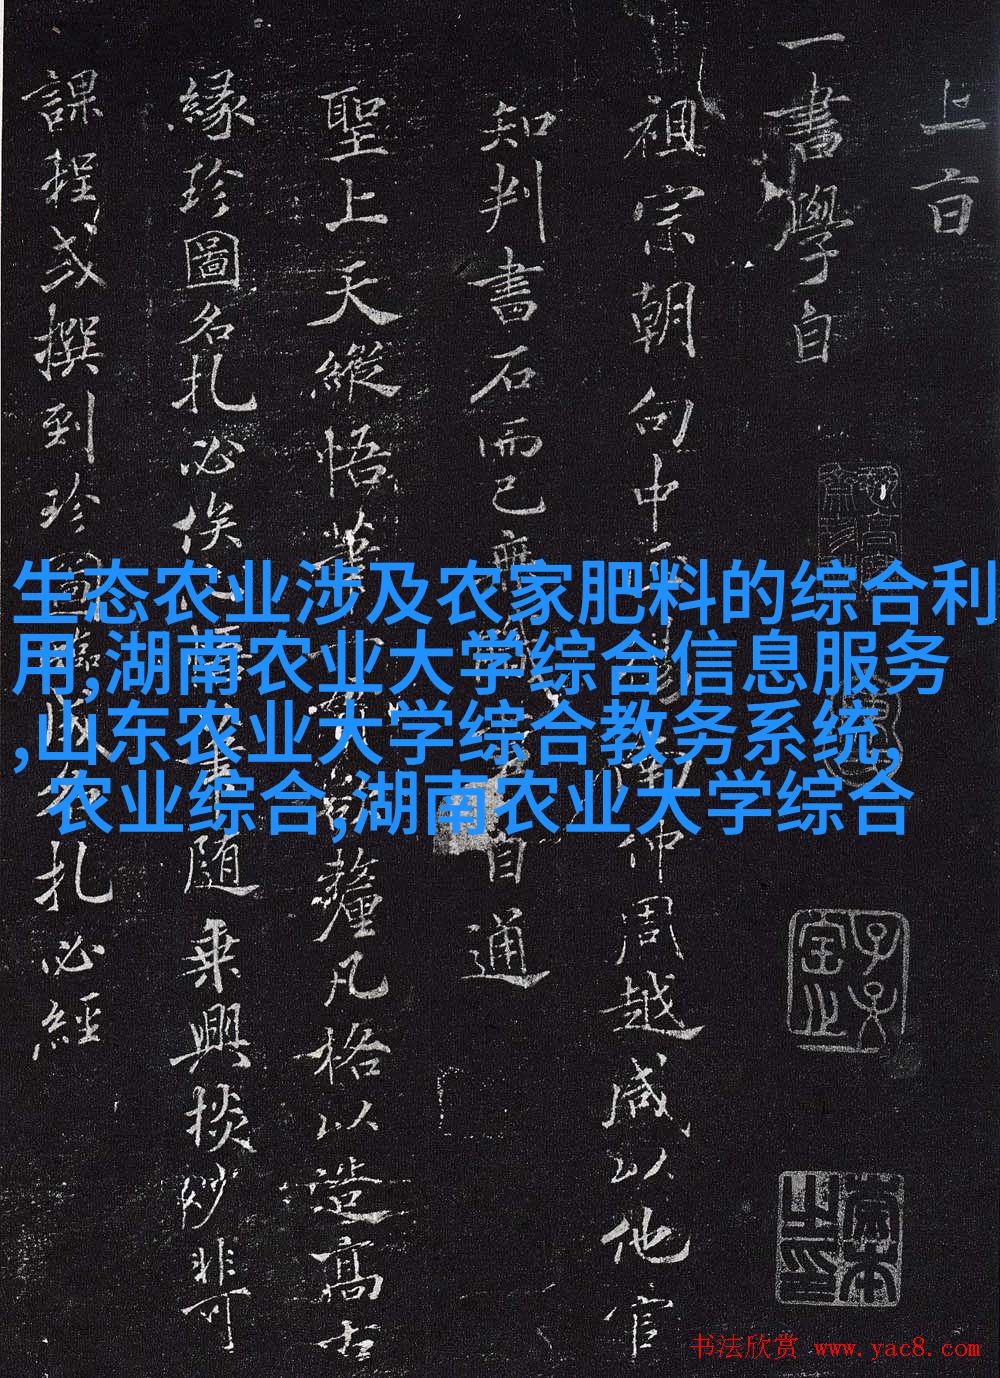 上旨
一書學自
祖宗朝向中
仲周越咸以他官
知判書石而已
自通
聖上天縱悟
釐凡格以造高古
緣珍圖名札必俟
隨乗興掞妙非可
課程或撰到珍
札必經
生态农业涉及农家肥料的综合利
用,湖南农业大学综合信息服务
,山东农业大学综合教务系统,
农业综合,湖南农业大学综合
书法欣赏 www.yac8.com